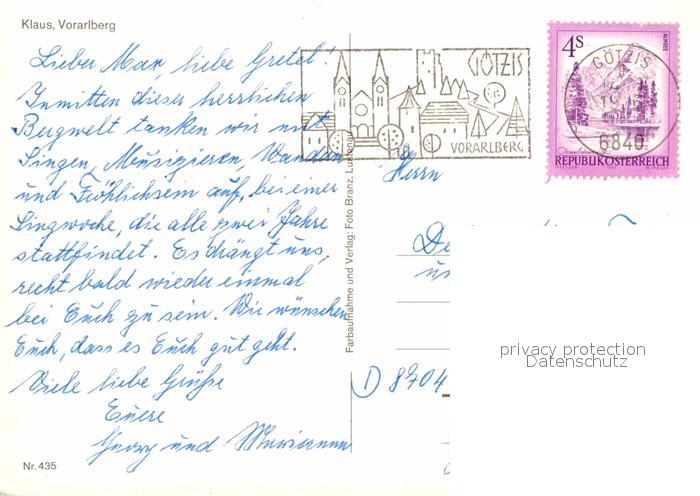 Klaus, Vorarlberg
Lieber Max, liebe Gretel!
Inmitten dieser herrlichen
Bergwelt tanken wir mit
Singen, Musizieren, Wandern
und Fröhlichsein auf, bei einer
Singwoche, die alle zwei Jahre
stattfindet. Es drängt uns,
recht bald wieder einmal
bei Euch zu sein. Wir wünschen
Euch, dass es Euch gut geht.
Viele liebe Grüße
Euere
Georg und
Nr. 435
Farbaufnahme und Verlag: Foto Branz, Lustenau
GÖTZIS
VORARLBERG
4s
ALMSEE
REPUBLIK ÖSTERREICH
GÖTZIS
6840
Herrn
D 8704
privacy protection
Datenschutz